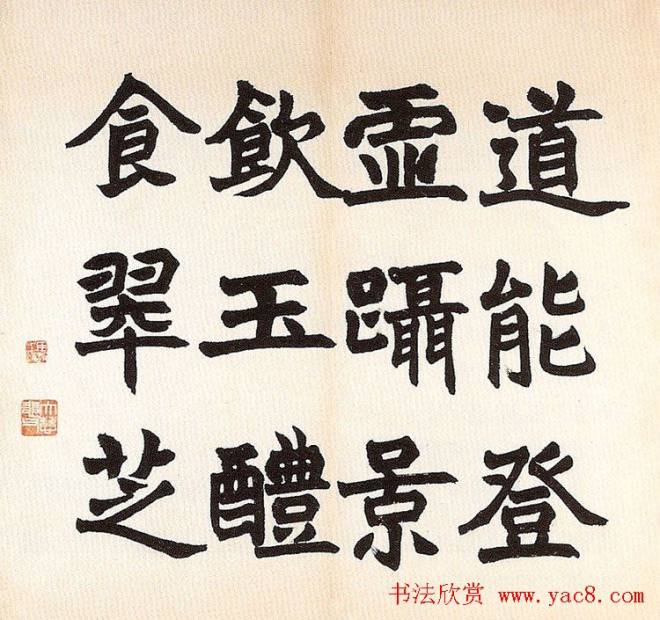 道能登
虛躡景
飲玉醴
食翠芝
书法欣赏 www.yac8.com